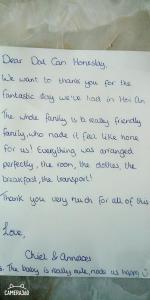 Dear Dat Can Homestay,
We want to thank you for the
fantastic day we've had in Hoi An
The whole family is a really friendly
family, who made it feel like home
for us! Everything was arranged
perfectly, the room, the clothes, the
breakfast, the transport!
Thank you very much for all of this
Love,
Chiel &
s. The baby is really cute, made us happy
CAMERA360